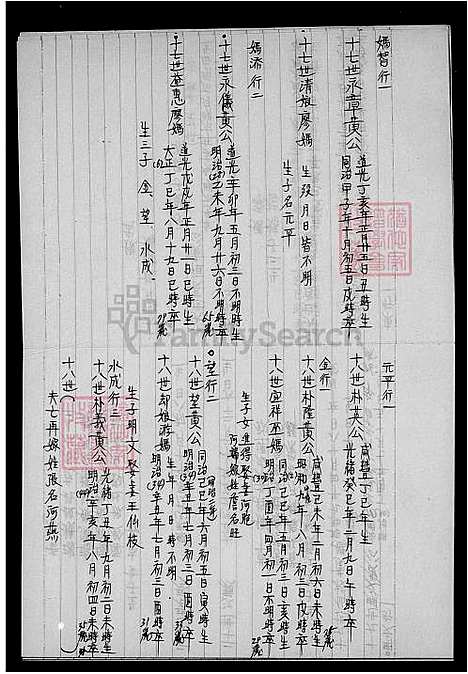 媽智行一
十七世永章黃公 道光丁亥年正月廿五日丑時生
同治甲子年十月初五日戌時卒
十七世清娘廖媽 生歿月日皆不明
生子名元平
媽添行二
十七世永儀黃公 道光辛卯年五月初三日不明時生
明治乙未年九月廿六日不明時卒 65歲
十七世益惠廖媽 道光戊戌年正月廿一日巳時生
大正丁巳年八月十九日巳時卒
生三子 金 望 水成
元平行一
十八世朴英公 咸豐丁巳年生
光緒癸巳年二月九日午時卒
金行一
十八世朴隆黃公 咸豐己未年二月初六日未時生
年八月初三日戌時卒
十八世宜祥巫媽 同治 年五月初三日亥時生
明治丁酉年四月初一日不明時卒
生子女 進得娶妻河胞
阿 娘姓詹名旺
望行二
十八世望黃公 同治己巳年六月初五日寅時生
明治辛丑年七月初三日酉時卒 33歲
十八世却娘游媽 生年月日時不明
明治辛丑年七月初三日酉時卒 31歲
生子明文娶妻王仙枝
水成行三
十八世朴義黃公 光緒丁丑年九月初二日未時生
明治辛亥年八月初四日未時卒 35歲
十八世
夫亡再嫁姓張名阿燕
FamilySearch